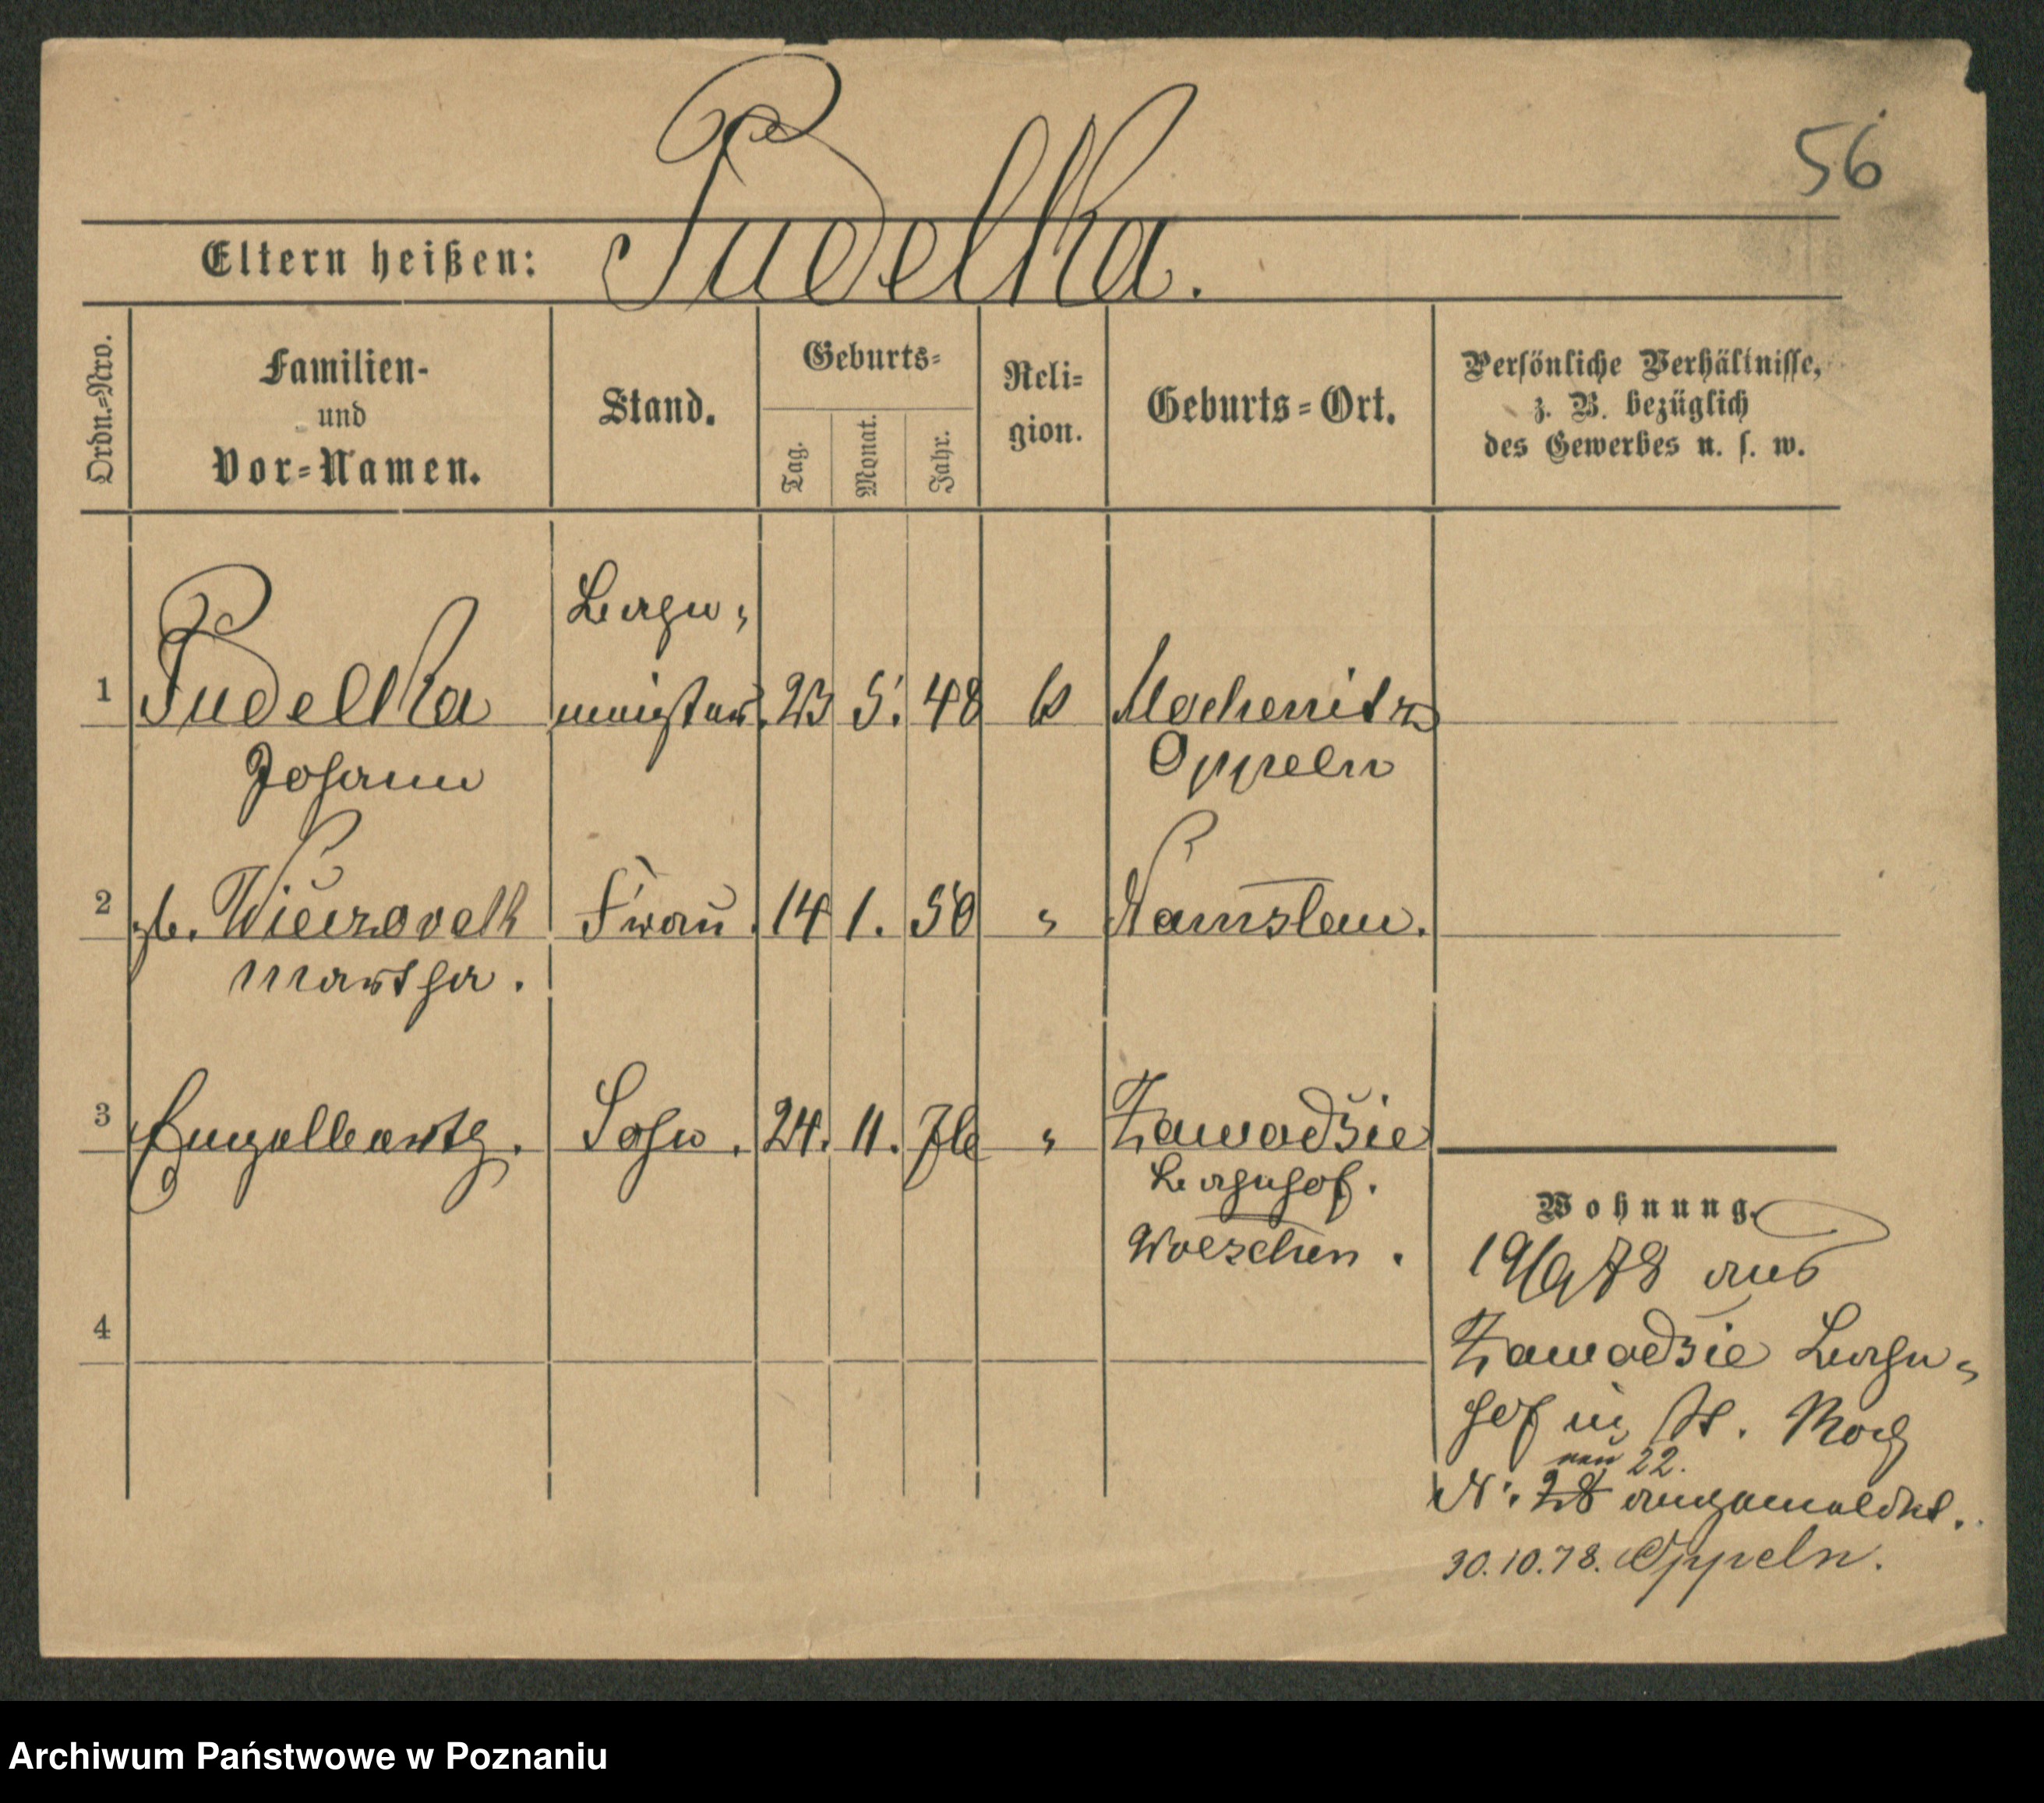 56
Eltern heißen: Pudelka.
Ordn.=Nro.
Familien-
und
Vor=Namen.
Stand.
Geburts=
Tag.
Monat.
Jahr.
Reli=
gion.
Geburts=Ort.
Persönliche Verhältnisse,
z. B. bezüglich
des Gewerbes u. s. w.
Bahn=
1 Pudelka meister. 23 5. 48 k
Johann Oppeln
2 gb. Frau. 14 1. 50 " Namslau.
Martha.
3 Engelberth. Sohn. 24. 11. 76 " Zawodzie
Bahnhof.
Wreschen.
4
Wohnung.
19/9 78 aus
Zawodzie Bahn=
hof in St. Roch
neu 22.
N. 28 angemeldet.
30.10.78. Oppeln.
Archiwum Państwowe w Poznaniu